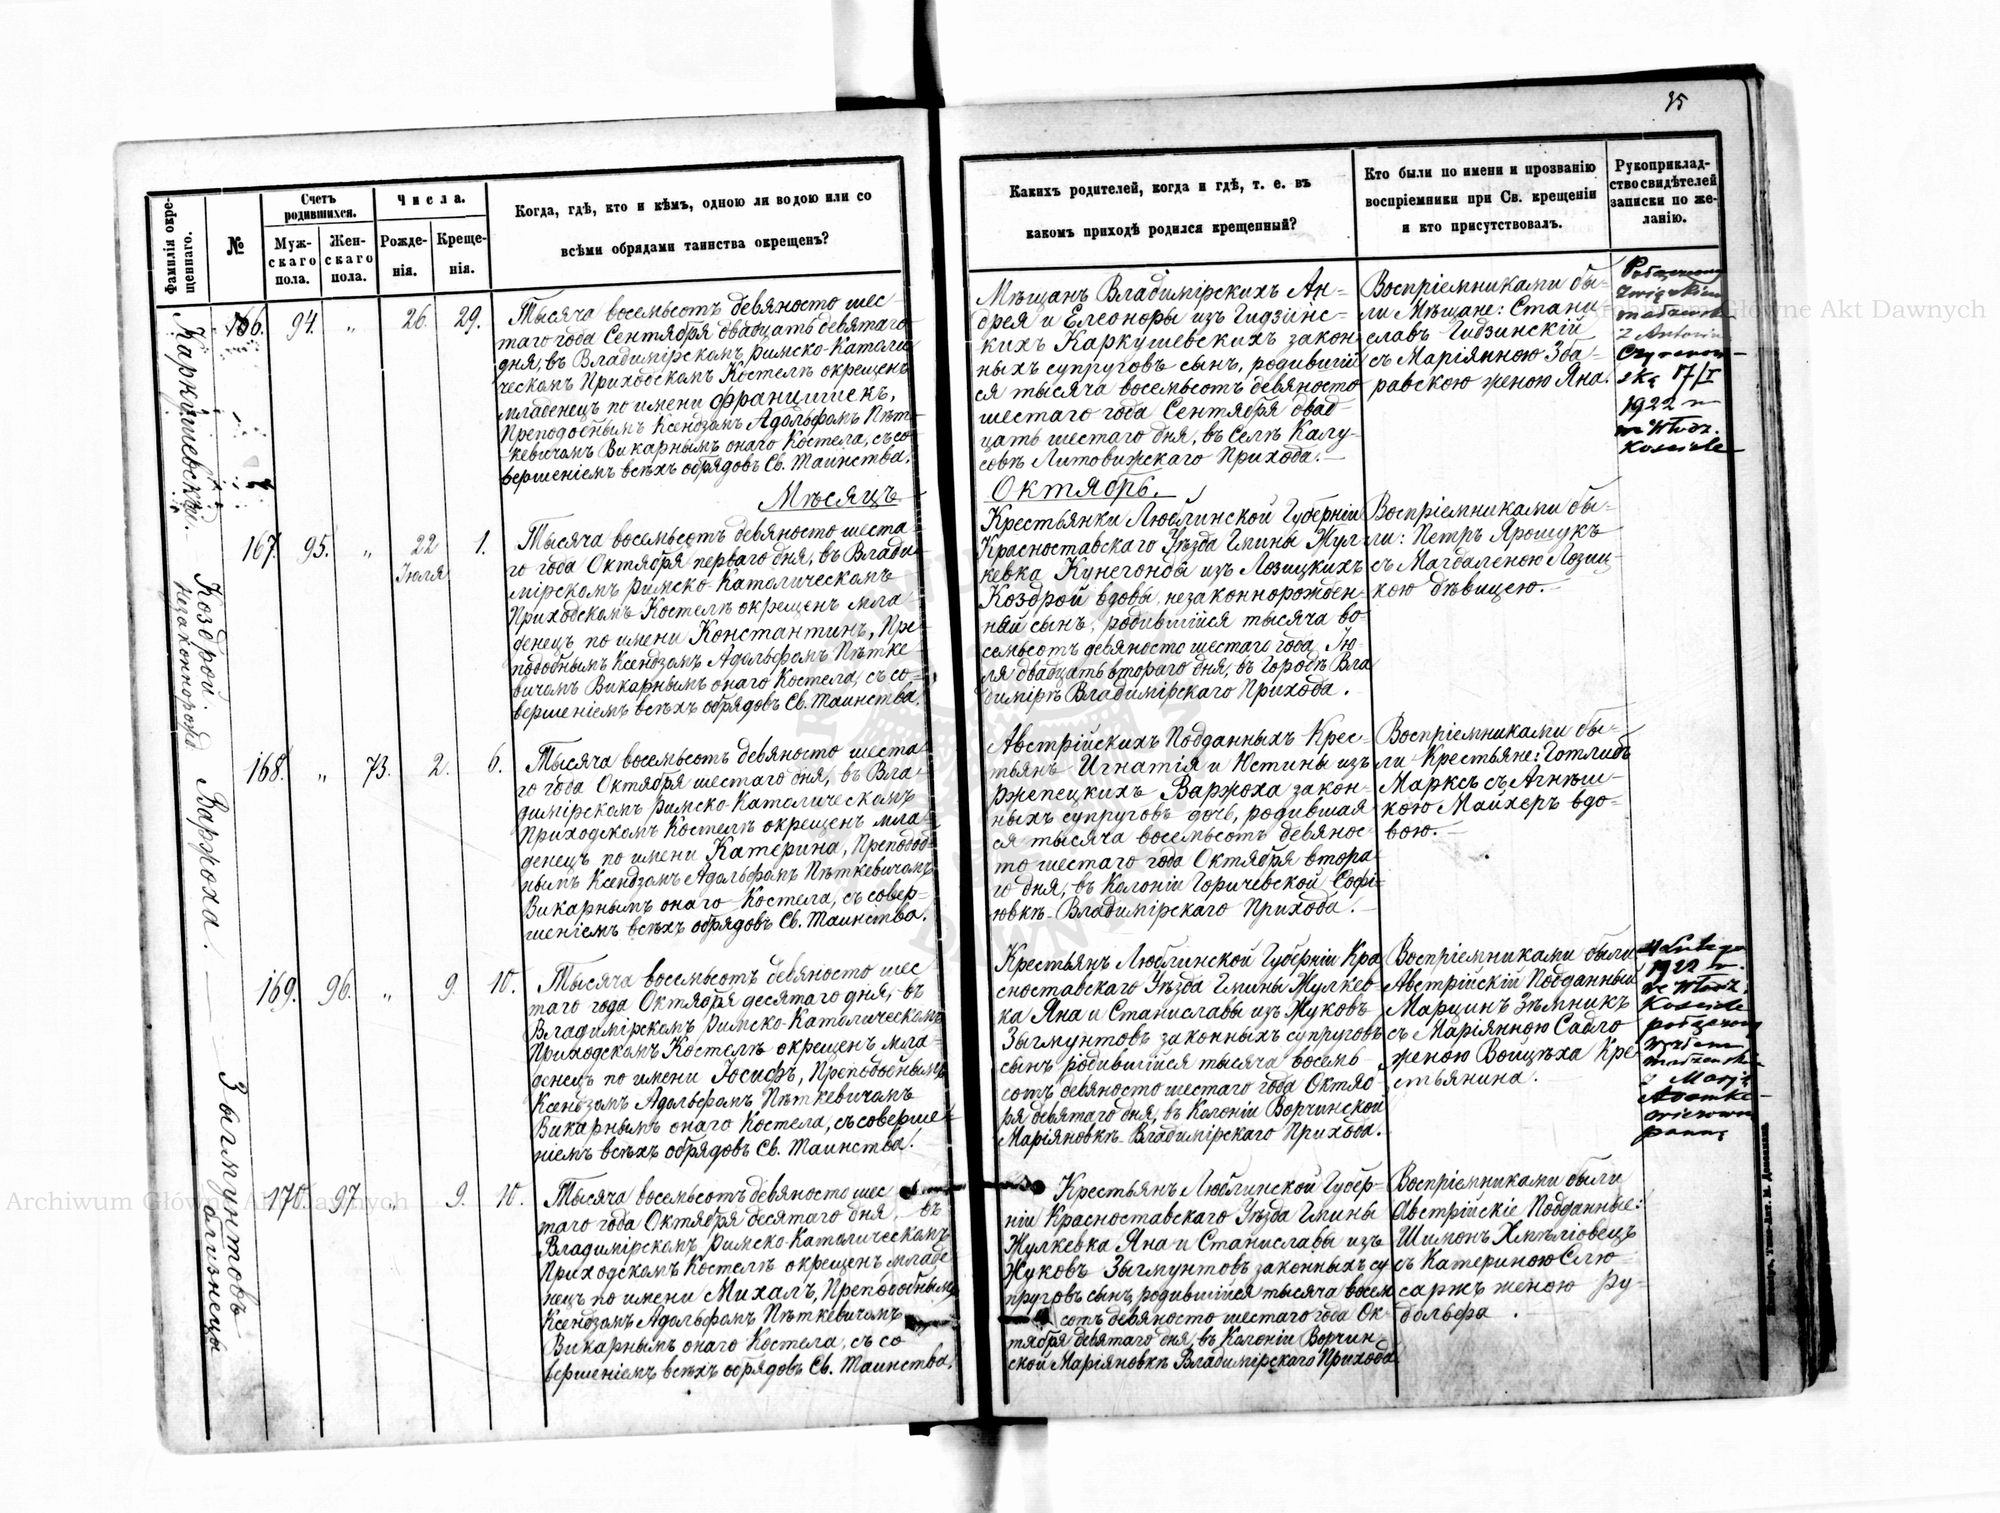 35
Фамилія окре-
щеннаго.
№
Счетъ
родившихся.
Муж-
скаго
пола.
Жен-
скаго
пола.
Числа.
Рожде-
нія.
Креще-
нія.
Когда, гдѣ, кто и кѣмъ, одною ли водою или со
всѣми обрядами таинства окрещенъ?
Какихъ родителей, когда и гдѣ, т. е. въ
какомъ приходѣ родился крещенный?
Кто были по имени и прозванію
воспріемники при Св. крещеніи
и кто присутствовалъ.
Рукоприклад-
ство свидѣтелей
записки по же-
ланію.
Каркушевскій.
166. 94. „ 26. 29.
Тысяча восемьсотъ девяносто шес-
таго года Сентября двадцать девятаго
дня, въ Владимірскомъ Римско-Католи-
ческомъ Приходскомъ Костелѣ окрещенъ
младенецъ по имени Францишекъ,
Преподобнымъ Ксендзомъ Адольфомъ Пѣт-
кевичамъ Викарнымъ онаго Костела, съ со-
вершеніемъ всѣхъ обрядовъ Св. Таинства.
Мѣщанъ Владимірскихъ Ан-
дрея и Елеоноры изъ Гидзинс-
кихъ Каркушевскихъ закон-
ныхъ супруговъ сынъ, родившій
ся тысяча восемьсотъ девяносто
шестаго года Сентября двад-
цать шестаго дня, въ Селѣ Калу-
совѣ Литовижскаго Прихода.
Воспріемниками бы-
ли Мѣщане: Стани
славъ Гидзинскій
съ Маріянною Зба-
равскою женою Яна.
z Antonin
17/I
1922 r
w Włodz.
Kościele
Мѣсяцъ
Октябрь.
Коздрой.
незаконнорожд
167. 95. „ 22 1.
Іюля
Тысяча восемьсотъ девяносто шеста-
го года Октября перваго дня, въ Влади-
мірскомъ Римско-Католическомъ
Приходскомъ Костелѣ окрещенъ мла
денецъ по имени Константинъ, Пре-
подобнымъ Ксендзомъ Адольфомъ Пѣтке-
вичамъ Викарнымъ онаго Костела, съ со-
вершеніемъ всѣхъ обрядовъ Св. Таинства.
Крестьянки Люблинской Губерніи
Красноставскаго Уѣзда Гмины Жул-
кевка Кунегонды изъ Лозицкихъ
Коздрой вдовы, незаконнорожден-
ный сынъ, родившійся тысяча во-
семьсотъ девяносто шестаго года Ію-
ля двадцать втораго дня, въ Городѣ Вла
димірѣ Владимірскаго Прихода.
Воспріемниками бы-
ли: Петръ Ярошукъ
съ Магдаленою Лозиц-
кою дѣвицею.
Варжоха.
168. „ 73. 2. 6.
Тысяча восемьсотъ девяносто шеста-
го года Октября шестаго дня, въ Вла-
димірскомъ Римско-Католическомъ
Приходскомъ Костелѣ окрещенъ мла-
денецъ по имени Катерина, Преподоб-
нымъ Ксендзомъ Адольфомъ Пѣткевичамъ
Викарнымъ онаго Костела, съ совер-
шеніемъ всѣхъ обрядовъ Св. Таинства.
Австрійскихъ Подданныхъ Крес-
тьянъ Игнатія и Юстины изъ
Ржепецкихъ Варжоха закон-
ныхъ супруговъ дочь, родившая
ся тысяча восемьсотъ девянос-
то шестаго года Октября втора-
го дня, въ Колоніи Горичевской Софі-
ювкѣ Владимірскаго Прихода.
Воспріемниками бы-
ли Крестьяне: Готлибъ
Марксъ съ Агнѣш-
кою Майхеръ вдо-
вою.
Зыгмунтовъ
близнецы
169. 96. „ 9. 10.
Тысяча восемьсотъ девяносто шес
таго года Октября десятаго дня, въ
Владимірскомъ Римско-Католическомъ
Приходскомъ Костелѣ окрещенъ мла-
денецъ по имени Іосифъ, Преподобнымъ
Ксендзомъ Адольфомъ Пѣткевичамъ
Викарнымъ онаго Костела, съ соверше-
ніемъ всѣхъ обрядовъ Св. Таинства.
Крестьянъ Люблинской Губерніи Кра
сноставскаго Уѣзда Гмины Жулкев-
ка Яна и Станиславы изъ Жуковъ
Зыгмунтовъ законныхъ супруговъ
сынъ родившійся тысяча восемь-
сотъ девяносто шестаго года Октяб-
ря девятаго дня, въ Колоніи Ворчинской
Маріяновкѣ Владимірскаго Прихода.
Воспріемниками были
Австрійскій Подданный
Марцинъ Зѣмникъ
съ Маріянною Садло
женою Войцѣха Кре-
стьянина.
Lutego
1922 r.
we Włodz.
Kościele
z Marją
panną
170. 97. „ 9. 10.
Тысяча восемьсотъ девяносто шес
таго года Октября десятаго дня, въ
Владимірскомъ Римско-Католическомъ
Приходскомъ Костелѣ окрещенъ младе-
нецъ по имени Михалъ, Преподобнымъ
Ксендзомъ Адольфомъ Пѣткевичамъ
Викарнымъ онаго Костела, съ со
вершеніемъ всѣхъ обрядовъ Св. Таинства.
Крестьянъ Люблинской Губер-
ніи Красноставскаго Уѣзда Гмины
Жулкевка Яна и Станиславы изъ
Жуковъ Зыгмунтовъ законныхъ су
пруговъ сынъ, родившійся тысяча восем
сотъ девяносто шестаго года Ок-
тября девятаго дня, въ Колоніи Ворчин
ской Маріяновкѣ Владимірскаго Прихода
Воспріемниками были
Австрійскіе Подданные:
Шимонъ Хмѣліовецъ
съ Катериною Слю-
саржъ женою Ру-
дольфа.
Archiwum Główne Akt Dawnych
Główne Akt Dawnych